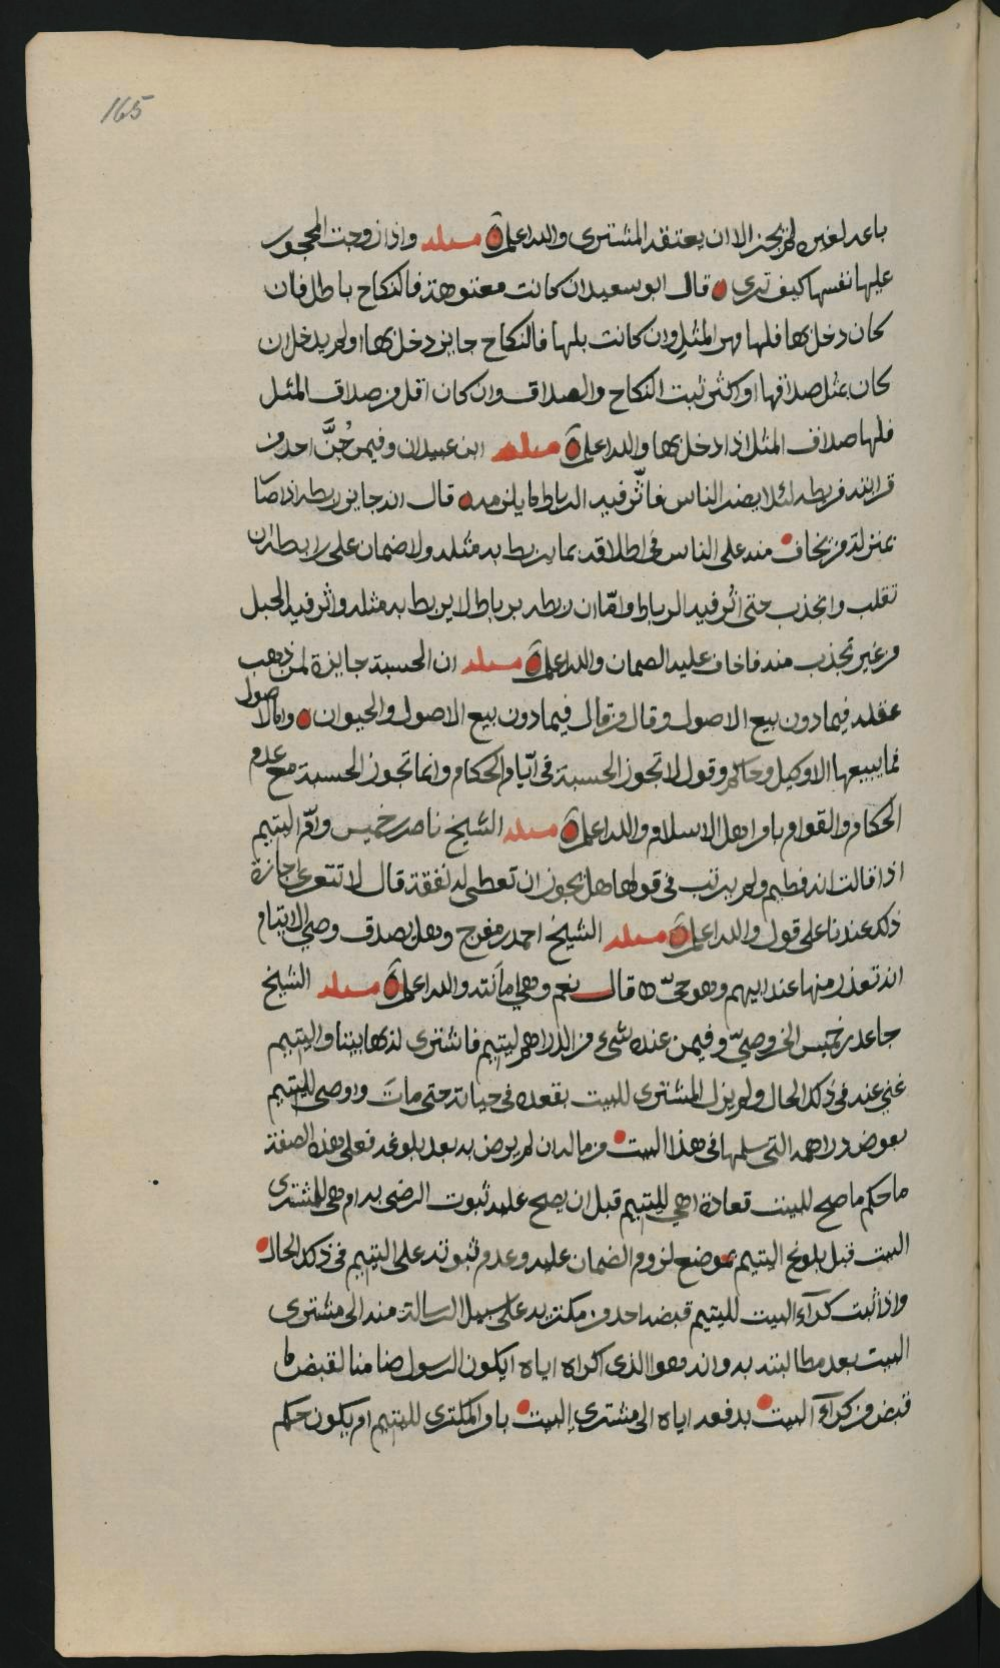 165
باعه لغيره لم يجز الا ان يعتقد المشتري والله اعلم مسئلة واذا زوجت المحجور
عليها نفسها كيف ترى قال ابو سعيد ان كانت معتوهة فالنكاح باطل فان
كان دخل بها فلها مهر المثل وان كانت بلها فالنكاح جايز دخل بها او لم يدخل ان
كان بمثل صداقها او اكثر ثبت النكاح والصداق وان كان اقل من صداق المثل
فلها صداق المثل اذا دخل بها والله اعلم مسئلة ابن عبيدان وفيمن جُنَّ احد من
قرابته فربطه لئلا يضر الناس فاثّر فيه الرباط ما يلزمه قال انه جايز ربطه اذا صا
بمنزلة من يخاف منه على الناس في اطلاقه بما يربط به مثله ولا ضمان على رابطه ان
تقلب وانجذب حتى اثر فيه الرباط وامّا ان ربطه برباط لا يربط به مثله واثر فيه الحبل
من غير تجذب منه فاخاف عليه الضمان والله اعلم مسئلة ان الحسبة جايزة لمن ذهب
عقله فيما دون بيع الاصول وقال من قال فيما دون بيع الاصول والحيوان واما الاصول
فما يبيعها الا وكيل وحاكم وقول لا تجوز الحسبة في ايّام الحكام وانما تجوز الحسبة مع عدم
الحكام والقوام بامر اهل الاسلام والله اعلم مسئلة الشيخ ناصر بن خميس وامّ اليتيم
اذا قالت انه فطيم ولم يرتب في قولها هل يجوز ان تعطى له نفقة قال لا تتعرى اجازة
ذلك عندنا على قول والله اعلم مسئلة الشيخ احمد بن مفرج وهل يصدق وصي الايتام
انه تعذر منها عند ابيهم وهو حيّ قال نعم وهي امانته والله اعلم مسئلة الشيخ
جاعد بن خميس الخروصيّ وفيمن عنده شيء من الدراهم ليتيم فاشترى له بها بيتا واليتيم
غني عنه في ذلك الحال ولم يزل المشتري للبيت بقعده في حياته حتى ماتَ واوصى لليتيم
بعوض دراهمه التي سلمها في هذا البيت من ماله ان لم يرض به بعد بلوغه فعلى هذه الصفة
ما حكم ما صح للبيت قعادة اهي لليتيم قبل ان يصح عليه ثبوت الرضى به ام هي للمشتري
البيت قبل بلوغ اليتيم بموضع لزوم الضمان عليه وعدم ثبوته على اليتيم في ذلك الحال
واذا ثبت كرآء البيت لليتيم قبضه احد من مكتر به على سبيل الرسالة منه الى مشتري
البيت بعد مطالبته به وانه هو الذي اكراه اياه ايكون الرسول ضامنا لقبض ما
قبض من كرآء البيت بدفعه اياه الى مشتري البيت بامر المكتري لليتيم ام يكون حكم